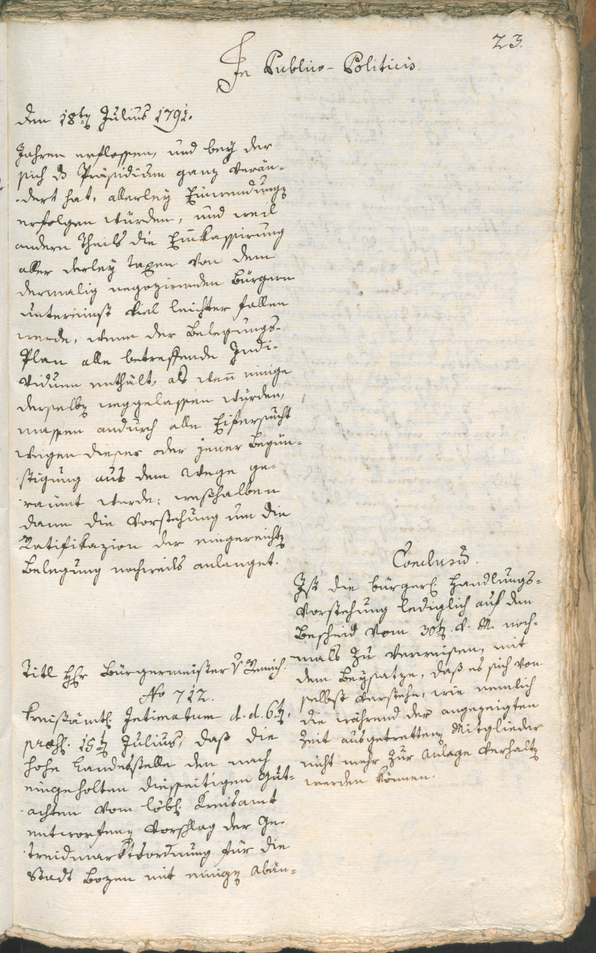 23.
In Publico-Politicis.
den 18ten Julius 1791.
Jahren erflossen, und bey der
sich das Präsidium ganz verän-
dert hat, allerley Einwendungen
erfolgen würden, und weil
andern Theils die Einkassirung
aller derley Taxen von dem
dermalig negozirenden Bürgern
untereinst viel leichter fallen
werde, wenn der Belegungs-
Plan alle betreffende Indi-
viduen enthält, als wenn einige
derselben weggelassen würden,
massen andurch alle Eifersucht
wegen dieser oder jener Begün-
stigung aus dem Wege ge-
raumt werde; weßhalben
dann die Vorstehung um die
Ratifikazion der eingereichten
Belegung nochmals anlanget.
Conclusum.
Ist die bürgerl. Handlungs-
Vorstehung lediglich auf den
Bescheid vom 30ten v. M. noch-
mals zu verweisen, mit
dem Beysatze, daß es sich von
selbst verstehe, wie nemlich
die während der angezeigten
Zeit ausgetretten Mitglieder
nicht mehr zur Anlage verhalten
werden können.
Titl Hr Bürgermeister v
No 712.
Kreisämtl. Intimatum d. d. 6ten,
praes. 15ten Julius, daß die
hohe Landesstelle den nach
eingeholten diesseitigen Gut-
achten vom löbl. Kreisamt
entworfenen Vorschlag der Ge-
treidmarktsordnung für die
Stadt Bozen mit einigen Abän-